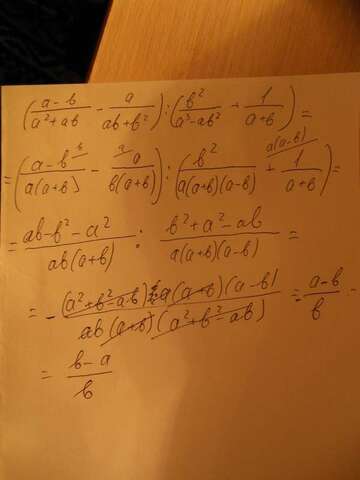 (a-b/a²+ab - a/ab+b²) : (b²/a³-ab² + 1/a+b) =
= (a-b^b/a(a+b) - a^a/b(a+b)) : (b²/a(a+b)(a-b) + 1^a(a-b)/a+b) =
= ab-b²-a²/ab(a+b) : b²+a²-ab/a(a+b)(a-b) =
= - (a²+b²-ab) a(a+b)(a-b)/ab(a+b)(a²+b²-ab) = - a-b/b =
= b-a/b